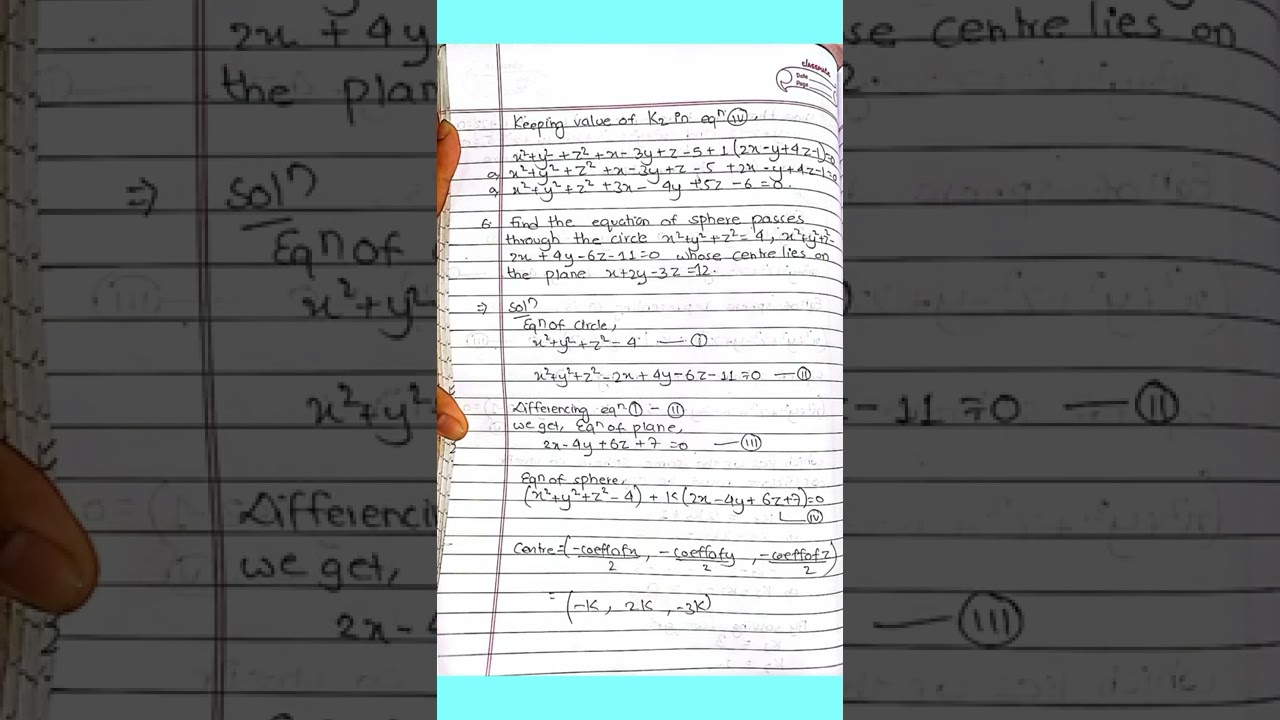 classmate
Date
Page
Keeping value of K₂ in eqⁿ (IV),
x²+y²+z²+x-3y+z-5+1(2x-y+4z-1)=0
a, x²+y²+z²+x-3y+z-5+2x-y+4z-1=0
a, x²+y²+z²+3x-4y+5z-6=0.
6. Find the equction of sphere passes
through the circle x²+y²+z²=4, x²+y²+z²-
2x+4y-6z-11=0 whose centre lies on
the plane x+2y-3z=12.
=> Solⁿ
Eqⁿ of circle,
x²+y²+z²-4 — (I)
x²+y²+z²-2x+4y-6z-11=0 — (II)
Differencing eqⁿ (I) - (II)
we get, Eqⁿ of plane,
2x-4y+6z+7=0 — (III)
Eqⁿ of sphere,
(x²+y²+z²-4)+K(2x-4y+6z+7)=0
(IV)
Centre=(-coeff of x/2, -coeff of y/2, -coeff of z/2)
=(-K, 2K, -3K)